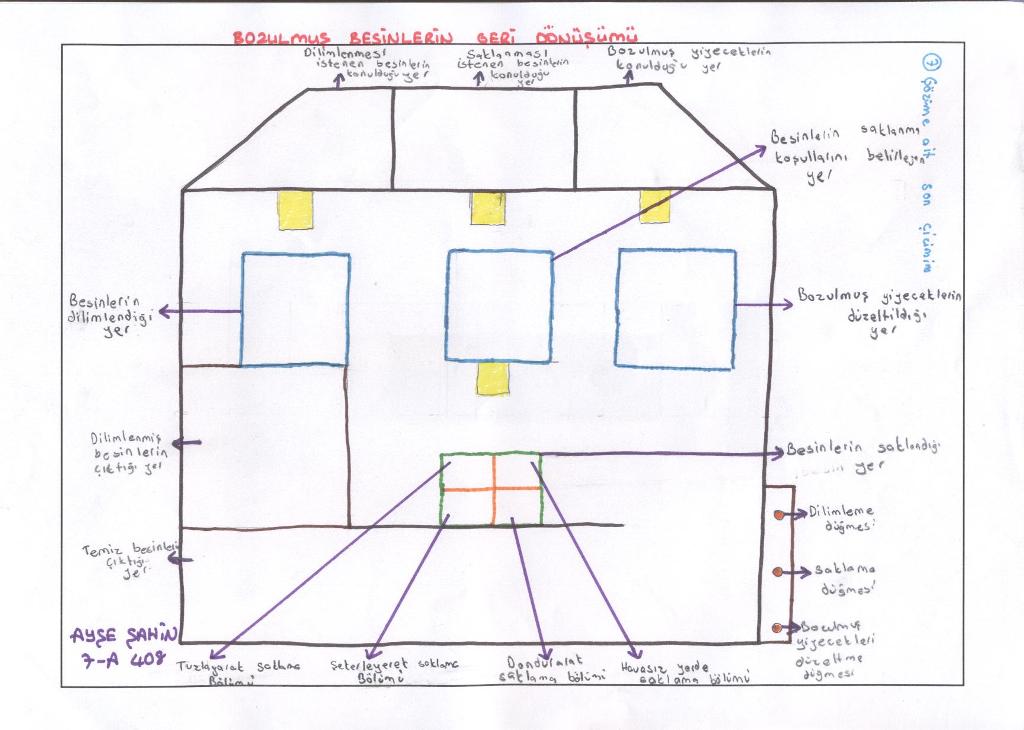 BOZULMUŞ BESİNLERİN GERİ DÖNÜŞÜMÜ
Dilimlenmesi
istenen besinlerin
konulduğu yer
Saklanması
istenen besinlerin
konulduğu
yer
Bozulmuş yiyeceklerin
konulduğu yer
7 Çözüme ait son çizimim
Besinlerin saklanma
koşullarını belirleyen
yer
Besinlerin
dilimlendiği
yer
Bozulmuş yiyeceklerin
düzeltildiği
yer
Dilimlenmiş
besinlerin
çıktığı yer
Besinlerin saklandığı
yer
Dilimleme
düğmesi
Temiz besinlerin
çıktığı
yer
saklama
düğmesi
Bozulmuş
yiyecekleri
düzeltme
düğmesi
AYŞE ŞAHİN
7-A 408
Tuzlayarak saklama
Bölümü
Şekerleyerek saklama
Bölümü
Dondurarak
saklama bölümü
Havasız yerde
saklama bölümü